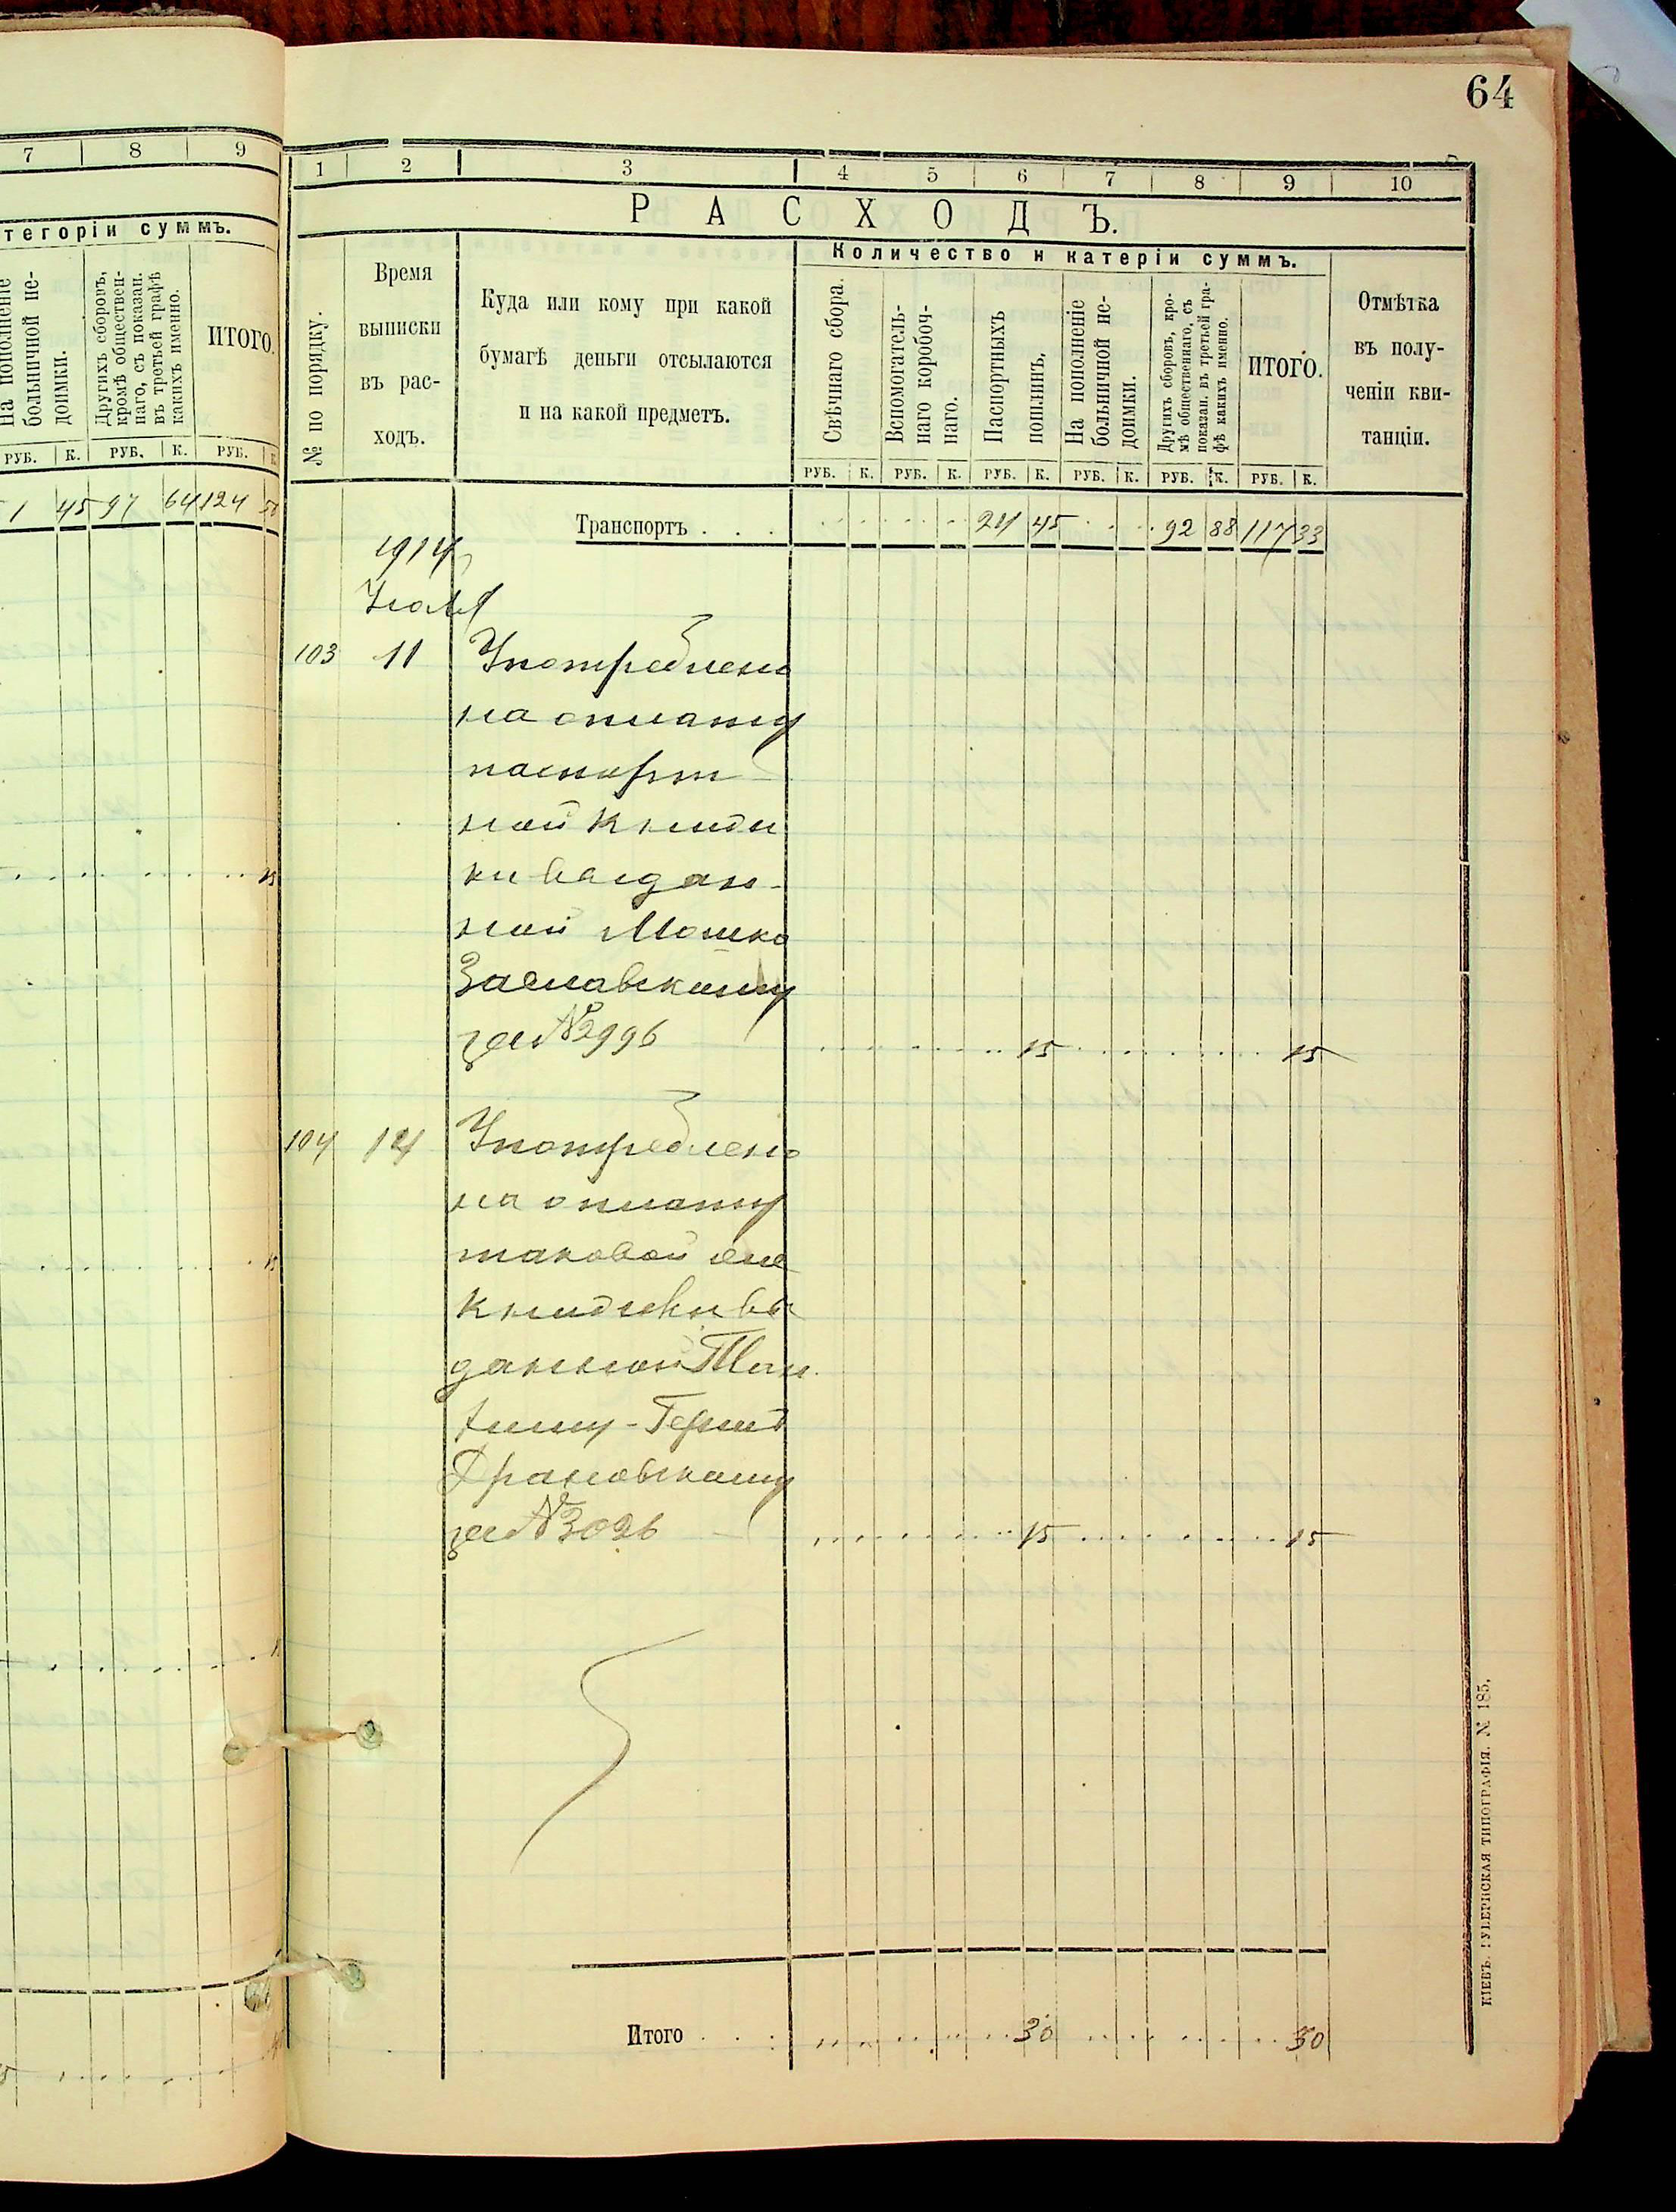 64
7 8 9
тегоріи суммъ.
На пополненіе
больничной не-
доимки.
Другихъ сборовъ,
кромѣ обществен-
наго, съ показан.
въ третьей графѣ
какихъ именно.
ИТОГО.
РУБ. К. РУБ. К. РУБ. К
1 45 97 64 124 50
15
15
1 2 3 4 5 6 7 8 9 10
РАСХОДЪ.
№ по порядку.
Время
выписки
въ рас-
ходъ.
Куда или кому при какой
бумагѣ деньги отсылаются
и на какой предметъ.
Количество и катеріи суммъ.
Свѣчнаго сбора.
Вспомогатель-
наго коробоч-
наго.
Паспортныхъ
пошлинъ.
На пополненіе
больничной не-
доимки.
Другихъ сборовъ, кро-
мѣ общественнаго, съ
показан. въ третьей гра-
фѣ какихъ именно.
ИТОГО.
Отмѣтка
въ полу-
ченіи кви-
танціи.
РУБ. К. РУБ. К. РУБ. К. РУБ. К. РУБ. К. РУБ. К.
Транспортъ . . . 24 45 92 88 117 33
1914
Іюль
103 11 Употреблено
на оплату
паспорт
ной книж
ки выдан-
ной Мошко
Заславскому
за № 2996 15 15
104 14 Употреблено
на оплату
таковой же
книжки вы
данной
Герш
за № 3026 15 15
Итого . . . 30 30
КІЕВЪ. ГУБЕРНСКАЯ ТИПОГРАФІЯ. № 185.